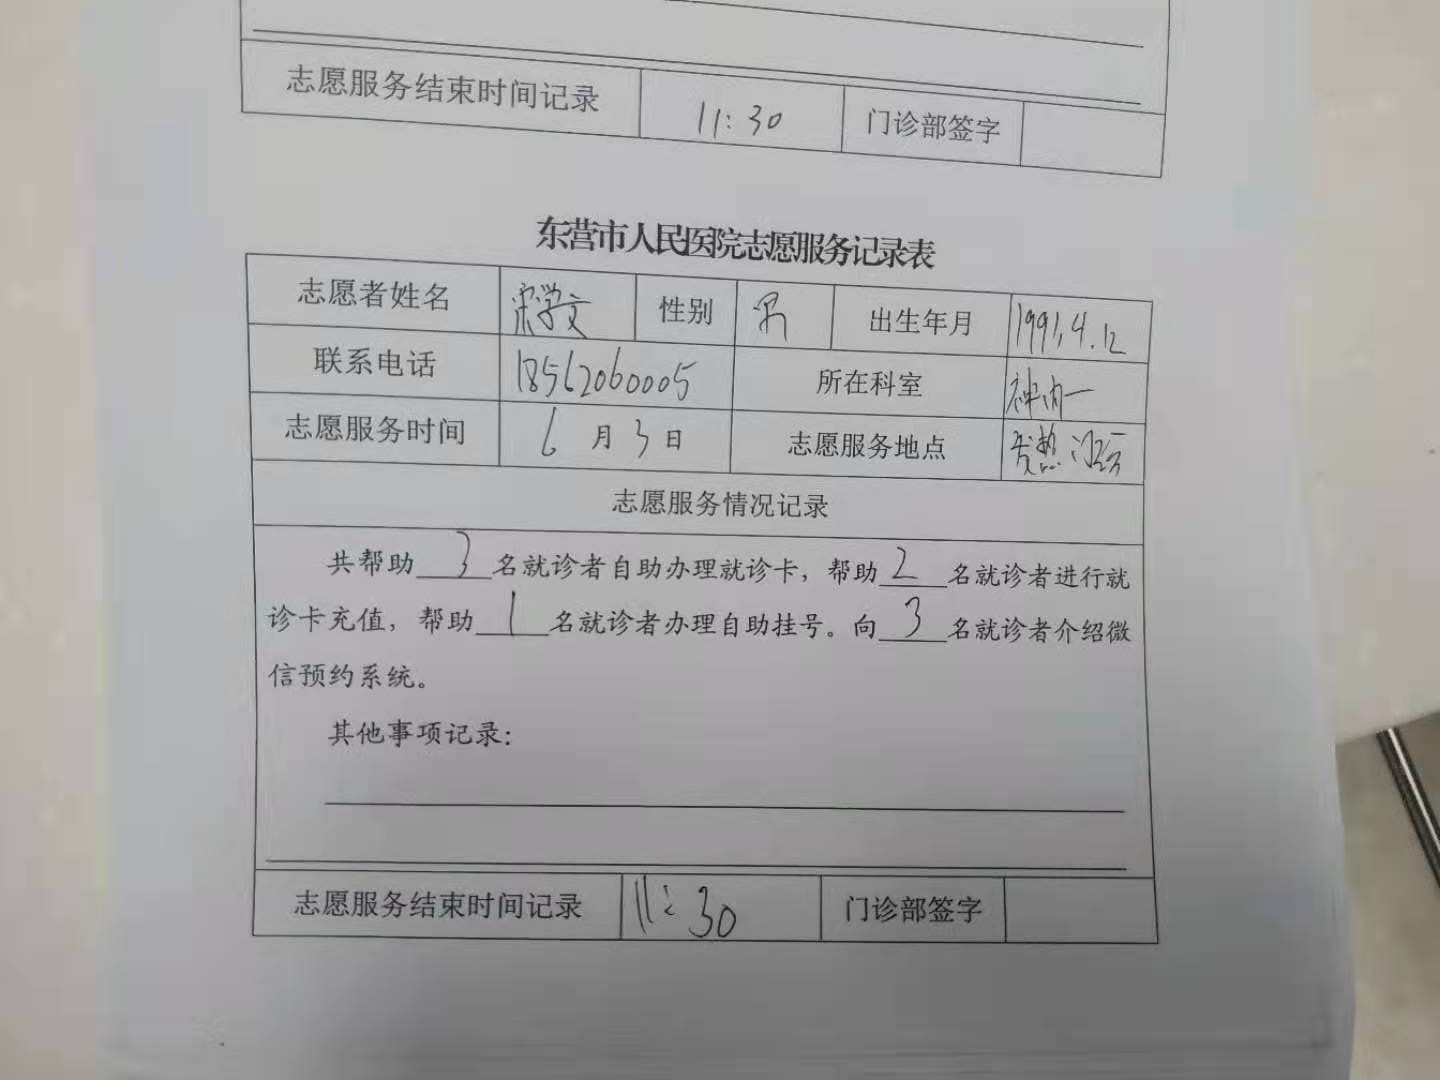 志愿服务结束时间记录 11:30 门诊部签字
东营市人民医院志愿服务记录表
志愿者姓名 宋学文 性别 男 出生年月 1991.4.12
联系电话 18562060005 所在科室 神内一
志愿服务时间 6月3日 志愿服务地点 发热门诊
志愿服务情况记录
共帮助3名就诊者自助办理就诊卡，帮助2名就诊者进行就
诊卡充值，帮助1名就诊者办理自助挂号。向3名就诊者介绍微
信预约系统。
其他事项记录：
志愿服务结束时间记录 11:30 门诊部签字